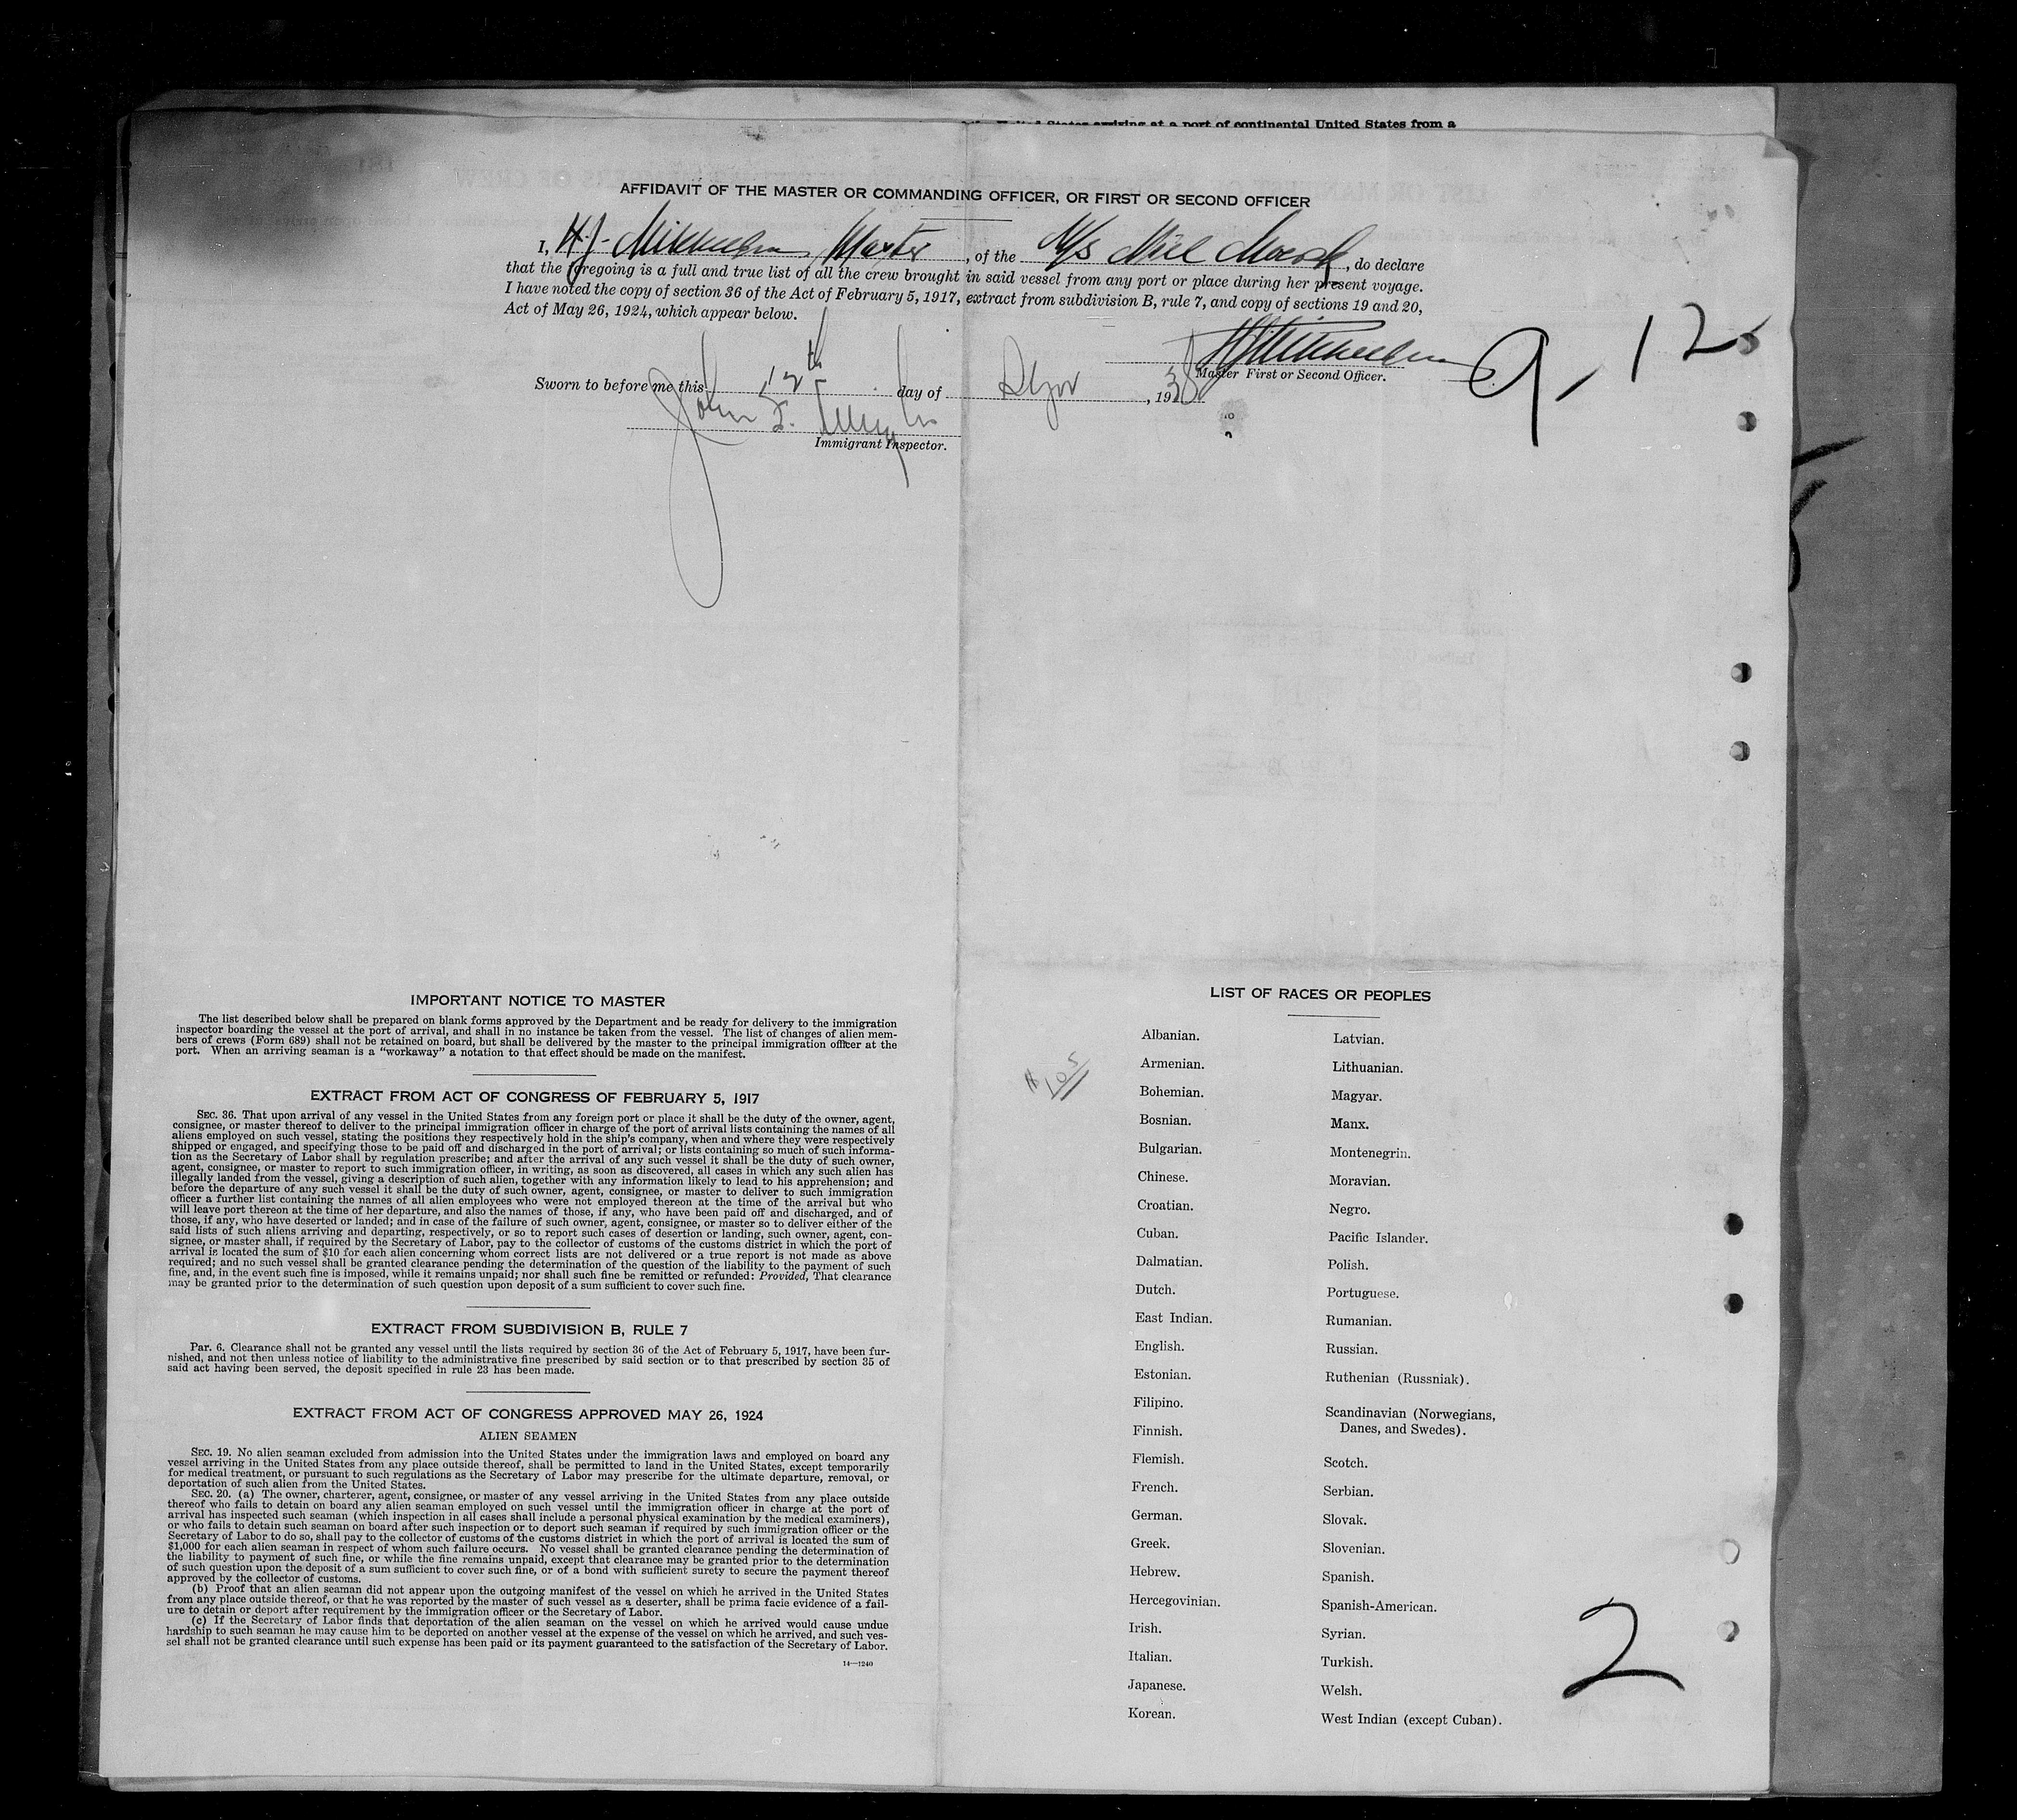 arriving at a port of continental United States from a
AFFIDAVIT OF THE MASTER OR COMMANDING OFFICER, OR FIRST OR SECOND OFFICER
I, H.J. Mikkelsen, Master, of the M/S Niel Maersk, do declare
that the foregoing is a full and true list of all the crew brought in said vessel from any port or place during her present voyage.
I have noted the copy of section 36 of the Act of February 5, 1917, extract from subdivision B, rule 7, and copy of sections 19 and 20,
Act of May 26, 1924, which appear below.
9-12
Master First or Second Officer.
Sworn to before me this 12th day of , 1938
John
Immigrant Inspector.
IMPORTANT NOTICE TO MASTER
The list described below shall be prepared on blank forms approved by the Department and be ready for delivery to the immigration
inspector boarding the vessel at the port of arrival, and shall in no instance be taken from the vessel. The list of changes of alien mem-
bers of crews (Form 689) shall not be retained on board, but shall be delivered by the master to the principal immigration officer at the
port. When an arriving seaman is a "workaway" a notation to that effect should be made on the manifest.
EXTRACT FROM ACT OF CONGRESS OF FEBRUARY 5, 1917
SEC. 36. That upon arrival of any vessel in the United States from any foreign port or place it shall be the duty of the owner, agent,
consignee, or master thereof to deliver to the principal immigration officer in charge of the port of arrival lists containing the names of all
aliens employed on such vessel, stating the positions they respectively hold in the ship's company, when and where they were respectively
shipped or engaged, and specifying those to be paid off and discharged in the port of arrival; or lists containing so much of such informa-
tion as the Secretary of Labor shall by regulation prescribe; and after the arrival of any such vessel it shall be the duty of such owner,
agent, consignee, or master to report to such immigration officer, in writing, as soon as discovered, all cases in which any such alien has
illegally landed from the vessel, giving a description of such alien, together with any information likely to lead to his apprehension; and
before the departure of any such vessel it shall be the duty of such owner, agent, consignee, or master to deliver to such immigration
officer a further list containing the names of all alien employees who were not employed thereon at the time of the arrival but who
will leave port thereon at the time of her departure, and also the names of those, if any, who have been paid off and discharged, and of
those, if any, who have deserted or landed; and in case of the failure of such owner, agent, consignee, or master so to deliver either of the
said lists of such aliens arriving and departing, respectively, or so to report such cases of desertion or landing, such owner, agent, con-
signee, or master shall, if required by the Secretary of Labor, pay to the collector of customs of the customs district in which the port of
arrival is located the sum of $10 for each alien concerning whom correct lists are not delivered or a true report is not made as above
required; and no such vessel shall be granted clearance pending the determination of the question of the liability to the payment of such
fine, and, in the event such fine is imposed, while it remains unpaid; nor shall such fine be remitted or refunded: Provided, That clearance
may be granted prior to the determination of such question upon deposit of a sum sufficient to cover such fine.
EXTRACT FROM SUBDIVISION B, RULE 7
Par. 6. Clearance shall not be granted any vessel until the lists required by section 36 of the Act of February 5, 1917, have been fur-
nished, and not then unless notice of liability to the administrative fine prescribed by said section or to that prescribed by section 35 of
said act having been served, the deposit specified in rule 23 has been made.
EXTRACT FROM ACT OF CONGRESS APPROVED MAY 26, 1924
ALIEN SEAMEN
SEC. 19. No alien seaman excluded from admission into the United States under the immigration laws and employed on board any
vessel arriving in the United States from any place outside thereof, shall be permitted to land in the United States, except temporarily
for medical treatment, or pursuant to such regulations as the Secretary of Labor may prescribe for the ultimate departure, removal, or
deportation of such alien from the United States.
SEC. 20. (a) The owner, charterer, agent, consignee, or master of any vessel arriving in the United States from any place outside
thereof who fails to detain on board any alien seaman employed on such vessel until the immigration officer in charge at the port of
arrival has inspected such seaman (which inspection in all cases shall include a personal physical examination by the medical examiners),
or who fails to detain such seaman on board after such inspection or to deport such seaman if required by such immigration officer or the
Secretary of Labor to do so, shall pay to the collector of customs of the customs district in which the port of arrival is located the sum of
$1,000 for each alien seaman in respect of whom such failure occurs. No vessel shall be granted clearance pending the determination of
the liability to payment of such fine, or while the fine remains unpaid, except that clearance may be granted prior to the determination
of such question upon the deposit of a sum sufficient to cover such fine, or of a bond with sufficient surety to secure the payment thereof
approved by the collector of customs.
(b) Proof that an alien seaman did not appear upon the outgoing manifest of the vessel on which he arrived in the United States
from any place outside thereof, or that he was reported by the master of such vessel as a deserter, shall be prima facie evidence of a fail-
ure to detain or deport after requirement by the immigration officer or the Secretary of Labor.
(c) If the Secretary of Labor finds that deportation of the alien seaman on the vessel on which he arrived would cause undue
hardship to such seaman he may cause him to be deported on another vessel at the expense of the vessel on which he arrived, and such ves-
sel shall not be granted clearance until such expense has been paid or its payment guaranteed to the satisfaction of the Secretary of Labor.
14—1240
LIST OF RACES OR PEOPLES
Albanian.
Armenian.
Bohemian.
Bosnian.
Bulgarian.
Chinese.
Croatian.
Cuban.
Dalmatian.
Dutch.
East Indian.
English.
Estonian.
Filipino.
Finnish.
Flemish.
French.
German.
Greek.
Hebrew.
Hercegovinian.
Irish.
Italian.
Japanese.
Korean.
Latvian.
Lithuanian.
Magyar.
Manx.
Montenegrin.
Moravian.
Negro.
Pacific Islander.
Polish.
Portuguese.
Rumanian.
Russian.
Ruthenian (Russniak).
Scandinavian (Norwegians,
Danes, and Swedes).
Scotch.
Serbian.
Slovak.
Slovenian.
Spanish.
Spanish-American.
Syrian.
Turkish.
Welsh.
West Indian (except Cuban).
2